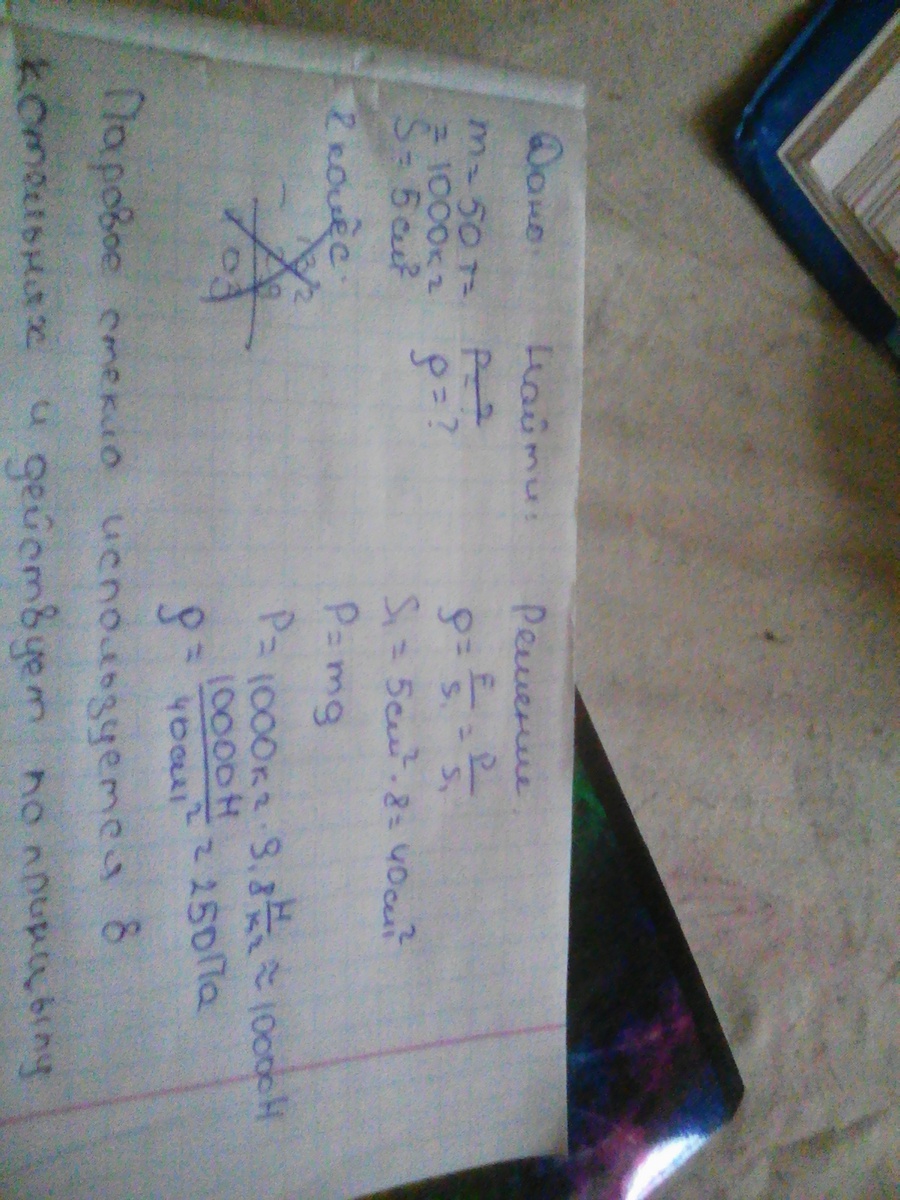 Дано: Найти: Решение.
m = 50 т = p = ? ρ = F/S₁ = P/S₁
= 1000 кг ρ = ?
S = 5 см² S₁ = 5 см² · 8 = 40 см²
8 колёс. P = mg
P = 1000 кг · 9,8 Н/кг ≈ 10000 Н
ρ = 10000 Н / 40 см² = 250 Па
Паровое стекло используется в
котельних и действует по принцыпу